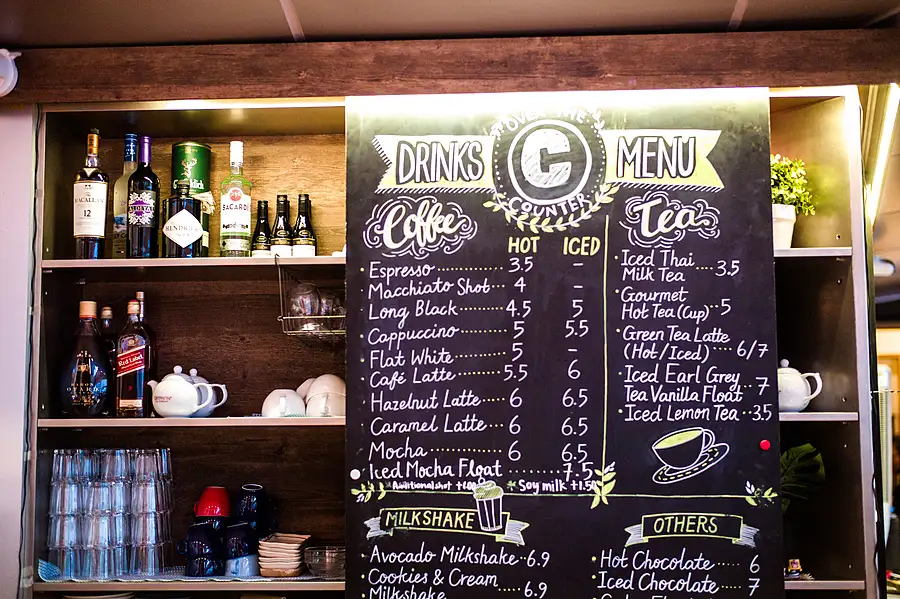 OVER THE
C
COUNTER
DRINKS MENU
Coffee
HOT ICED
Espresso 3.5 –
Macchiato Shot 4 –
Long Black 4.5 5
Cappuccino 5 5.5
Flat White 5 –
Café Latte 5.5 6
Hazelnut Latte 6 6.5
Caramel Latte 6 6.5
Mocha 6 6.5
Iced Mocha Float 7.5
*Additional shot
*Soy milk +1.50
Tea
Iced Thai
Milk Tea 3.5
Gourmet
Hot Tea (Cup) 5
Green Tea Latte
(Hot/Iced) 6/7
Iced Earl Grey
Tea Vanilla Float 7
Iced Lemon Tea 3.5
MILKSHAKE
Avocado Milkshake 6.9
Cookies & Cream
Milkshake 6.9
OTHERS
Hot Chocolate 6
Iced Chocolate 7
MACALLAN
12
HENDRICK'S
BACARDI
OTARD
Red Label